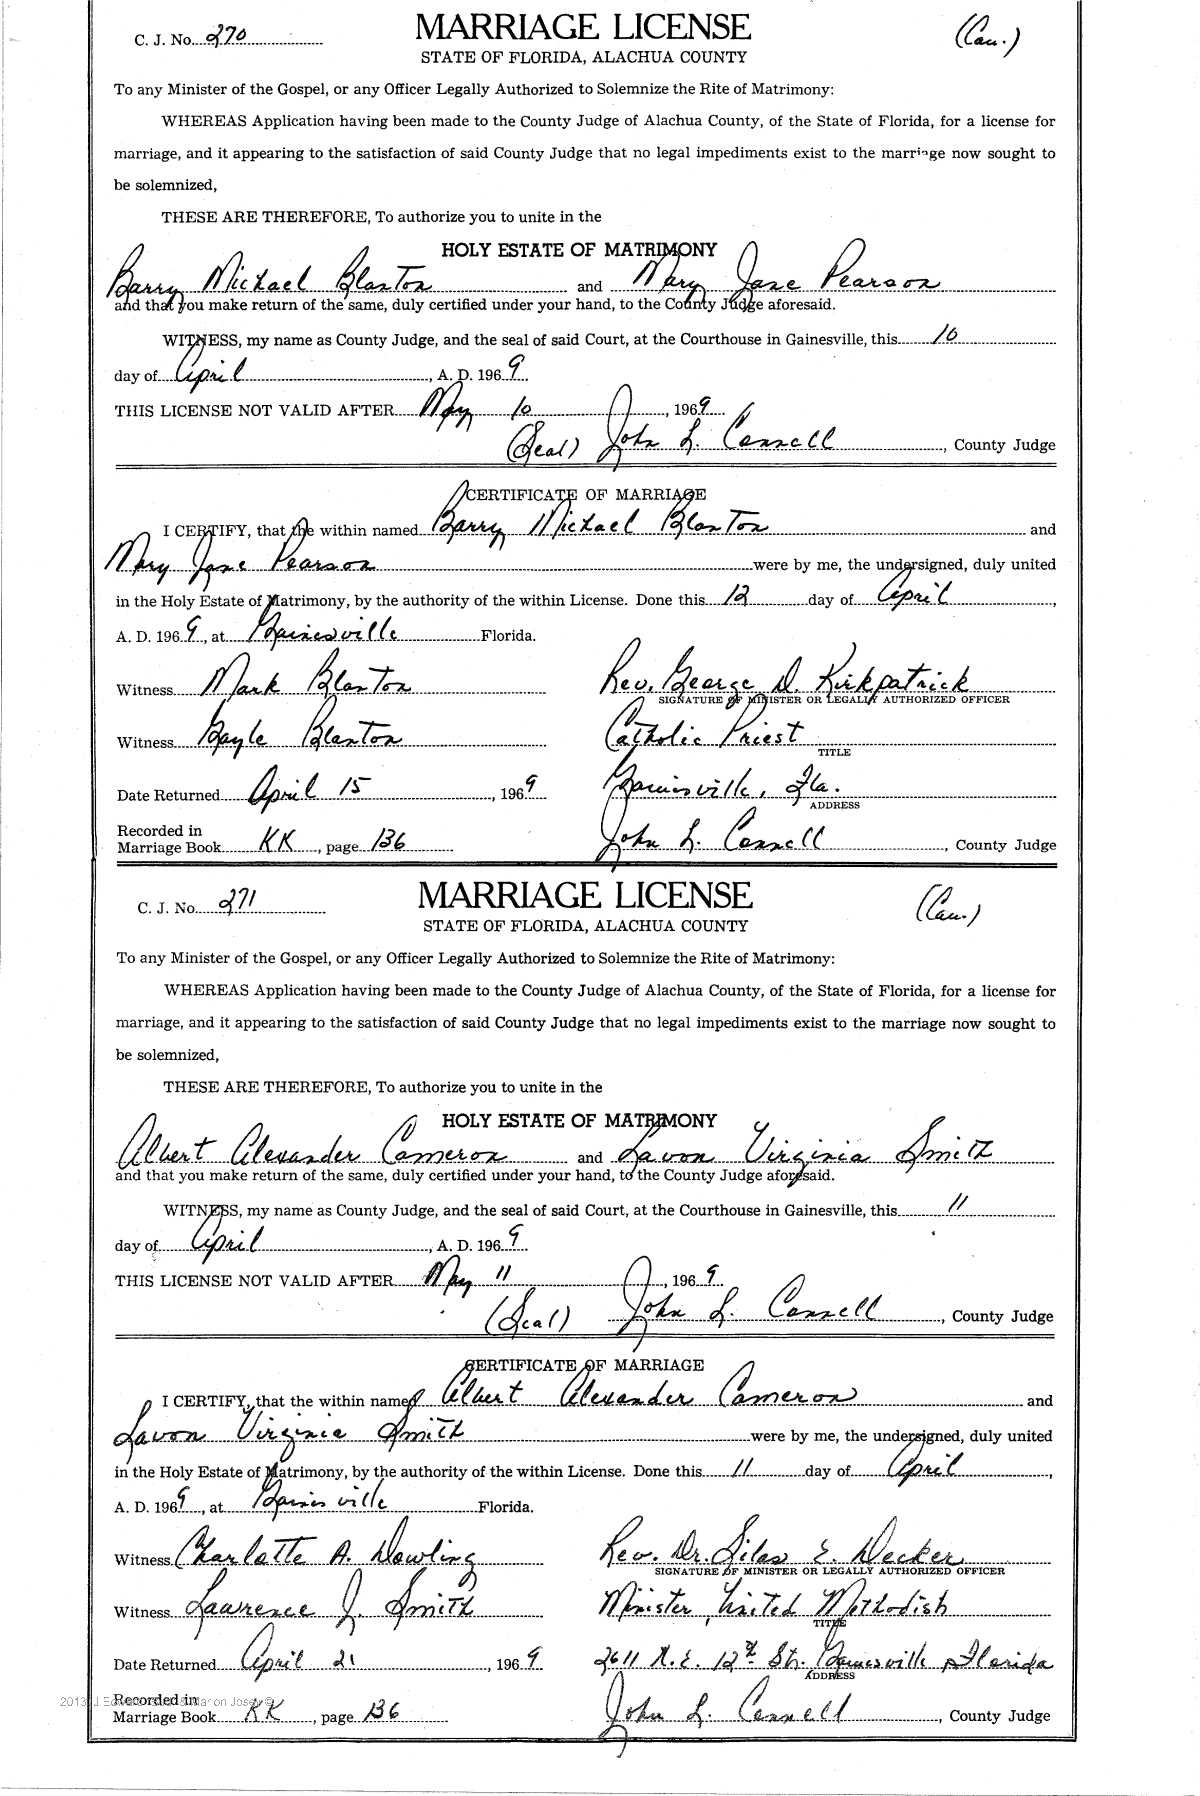 C. J. No. 270
MARRIAGE LICENSE
(Cau.)
STATE OF FLORIDA, ALACHUA COUNTY
To any Minister of the Gospel, or any Officer Legally Authorized to Solemnize the Rite of Matrimony:
WHEREAS Application having been made to the County Judge of Alachua County, of the State of Florida, for a license for
marriage, and it appearing to the satisfaction of said County Judge that no legal impediments exist to the marriage now sought to
be solemnized,
THESE ARE THEREFORE, To authorize you to unite in the
HOLY ESTATE OF MATRIMONY
Barry Michael Blanton and Mary Jane Pearson
and that you make return of the same, duly certified under your hand, to the County Judge aforesaid.
WITNESS, my name as County Judge, and the seal of said Court, at the Courthouse in Gainesville, this 10
day of April, A. D. 1969.
THIS LICENSE NOT VALID AFTER May 10, 1969
(Seal) John L. Connell, County Judge
CERTIFICATE OF MARRIAGE
I CERTIFY, that the within named Barry Michael Blanton and
Mary Jane Pearson were by me, the undersigned, duly united
in the Holy Estate of Matrimony, by the authority of the within License. Done this 12 day of April,
A. D. 1969, at Gainesville Florida.
Witness Mark Blanton Rev. George D. Kirkpatrick
SIGNATURE OF MINISTER OR LEGALLY AUTHORIZED OFFICER
Witness Gayle Blanton Catholic Priest
TITLE
Date Returned April 15, 1969 Gainesville, Fla.
ADDRESS
Recorded in
Marriage Book KK, page 136 John L. Connell, County Judge
C. J. No. 271
MARRIAGE LICENSE
(Cau.)
STATE OF FLORIDA, ALACHUA COUNTY
To any Minister of the Gospel, or any Officer Legally Authorized to Solemnize the Rite of Matrimony:
WHEREAS Application having been made to the County Judge of Alachua County, of the State of Florida, for a license for
marriage, and it appearing to the satisfaction of said County Judge that no legal impediments exist to the marriage now sought to
be solemnized,
THESE ARE THEREFORE, To authorize you to unite in the
HOLY ESTATE OF MATRIMONY
Albert Alexander Cameron and Lavon Virginia Smith
and that you make return of the same, duly certified under your hand, to the County Judge aforesaid.
WITNESS, my name as County Judge, and the seal of said Court, at the Courthouse in Gainesville, this 11
day of April, A. D. 1969.
THIS LICENSE NOT VALID AFTER May 11, 1969
(Seal) John L. Connell, County Judge
CERTIFICATE OF MARRIAGE
I CERTIFY, that the within named Albert Alexander Cameron and
Lavon Virginia Smith were by me, the undersigned, duly united
in the Holy Estate of Matrimony, by the authority of the within License. Done this 11 day of April,
A. D. 1969, at Gainesville Florida.
Witness Charlotte A. Dowling Rev. Dr. Silas E. Decker
SIGNATURE OF MINISTER OR LEGALLY AUTHORIZED OFFICER
Witness Lawrence J. Smith Minister, United Methodish
TITLE
Date Returned April 21, 1969 2611 N.E. 12th St. Gainesville Florida
ADDRESS
Recorded in
Marriage Book KK, page 136 John L. Connell, County Judge